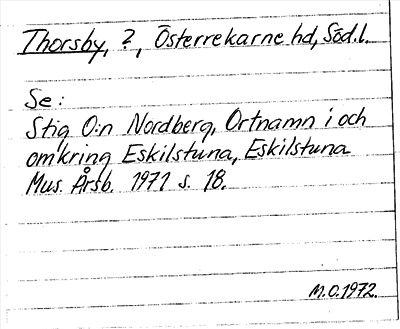 Thorsby, ?, Österrekarne hd, Söd.l.
Se:
Stig O:n Nordberg, Ortnamn i och
omkring Eskilstuna, Eskilstuna
Mus. Årsb. 1971 s. 18.
M.O.1972.